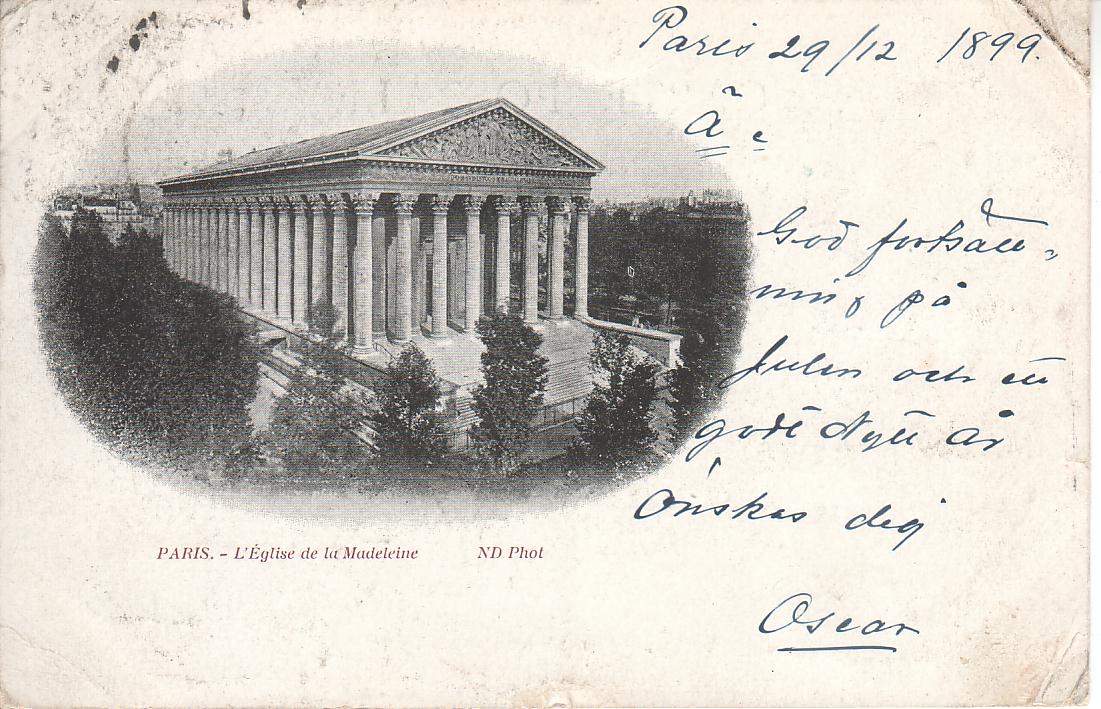 Paris 29/12 1899.
God fortsätt-
ning på
Julen och ett
godt Nytt år
Önskas dig
Oscar
PARIS. - L'Église de la Madeleine ND Phot